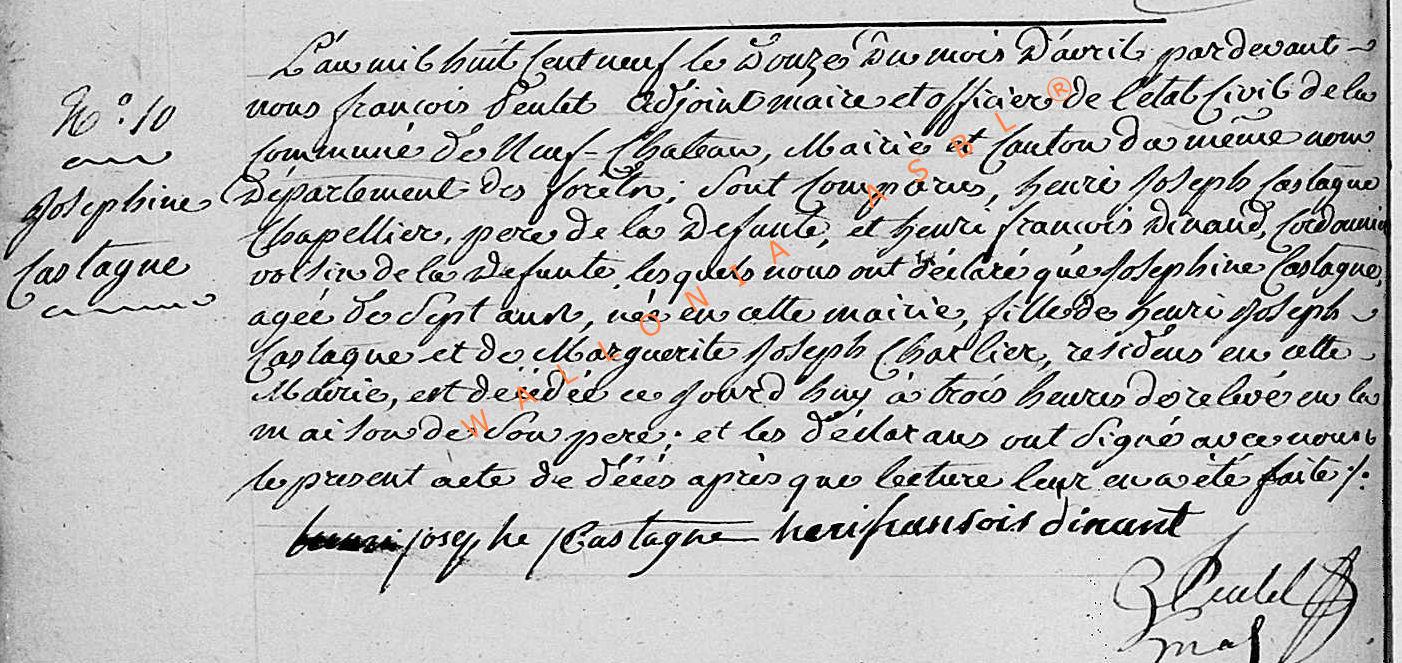 N.° 10
Josephine
Castagne
L'an mil huit Cent neuf le Douze Du mois D'avril pardevant
nous françois Peulet Adjoint maire et officier de l'état Civil de la
Commune de Neuf-Chateau, Mairie et Canton du même nom
Département des forêts; Sont Comparus, henri Joseph Castagne
Chapellier, pere de la Defunte, et henri françois Dinand, Cordonnier
voisin de la Defunte lesquels nous ont déclaré que Josephine Castagne,
agée de Sept ans, née en cette mairie, fille de henri Joseph
Castagne et de Marguerite Joseph Charlier, residens en cette
Mairie, est decédée ce Jourd huy à trois heures de relevé en la
maison de Son pere; et les déclarans ont Signé avec nous
le present acte de décés après que lecture leur en a été faite ⁒
henri josephe Castagne herifransois dinant
Peulet
WALLONIA ASBL ®